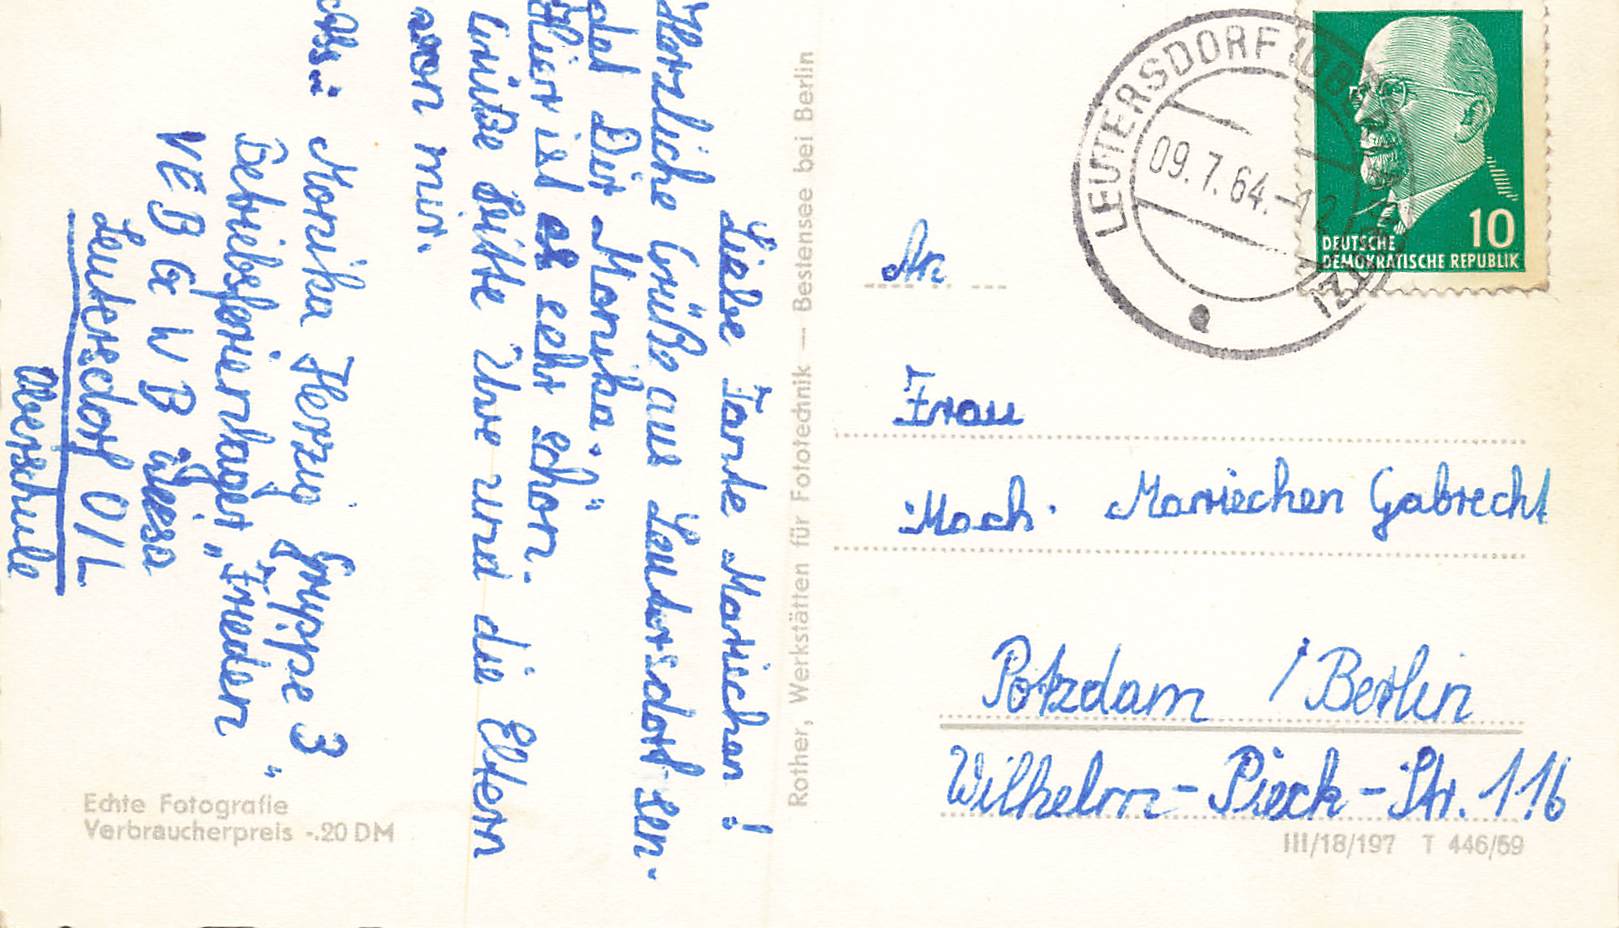 Liebe Tante Mariechen!
Herzliche Grüße aus Leutersdorf sen-
det Dir Monika.
Hier ist es sehr schön.
Grüße bitte Uwe und die Eltern
von mir.
Abs.: Monika Herzig Gruppe 3
Betriebsferienlager "Frieden"
VEB GWB
Leutersdorf O/L
Oberschule
Rother, Werkstätten für Fototechnik — Bestensee bei Berlin
Echte Fotografie
Verbraucherpreis -.20 DM
LEUTERSDORF (OBERLAUSITZ)
09.7.64.-12
e
10
DEUTSCHE
DEMOKRATISCHE REPUBLIK
An
Frau
Mariechen Gabrecht
Potzdam / Berlin
Wilhelm-Pieck-Str. 116
III/18/197 T 446/59